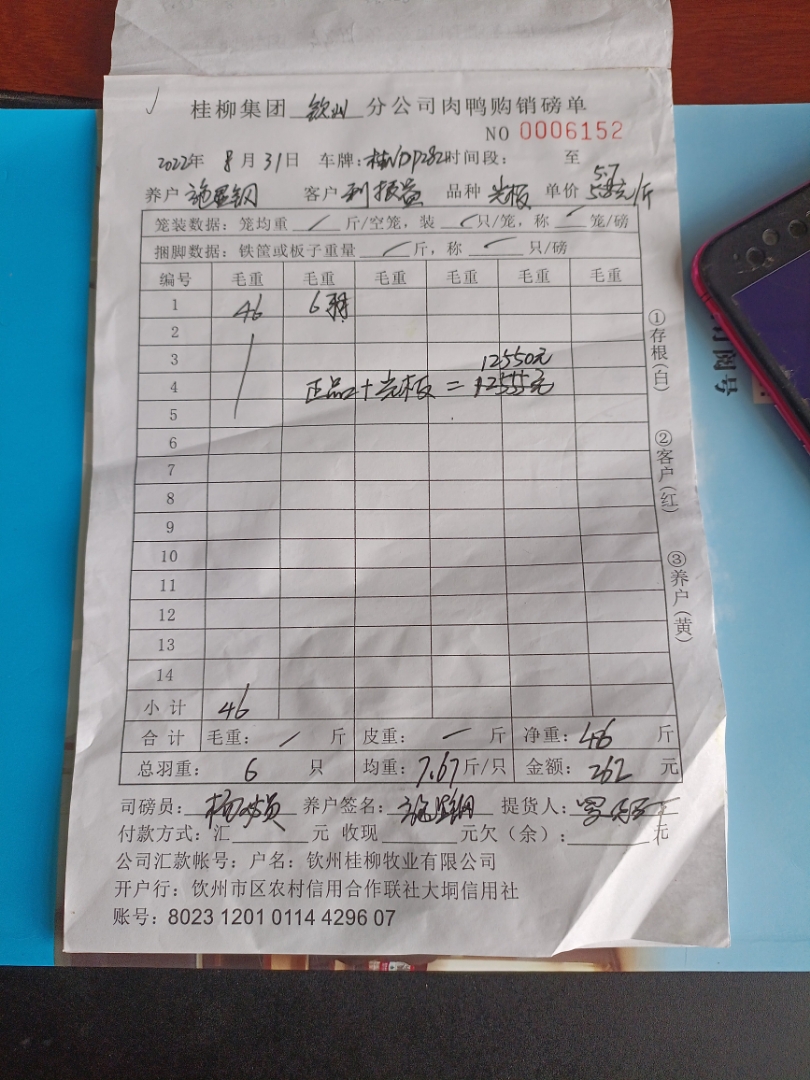 桂柳集团 钦州 分公司肉鸭购销磅单
NO 0006152
2022年 8月31日 车牌: 时间段: 至
5.7
养户 客户 利振益 品种 光板 单价 元/斤
笼装数据: 笼均重 / 斤/空笼, 装 / 只/笼, 称 / 笼/磅
捆脚数据: 铁筐或板子重量 / 斤, 称 / 只/磅
编号 毛重 毛重 毛重 毛重 毛重 毛重
1 46 6羽
2
3 12550元
4 正品+光板=12555元
5
6
7
8
9
10
11
12
13
14
小计 46
合计 毛重: / 斤 皮重: 一 斤 净重: 46 斤
总羽重: 6 只 均重: 7.67斤/只 金额: 262 元
司磅员: 养户签名: 提货人:
付款方式: 汇 元 收现 元欠(余): 元
公司汇款帐号: 户名: 钦州桂柳牧业有限公司
开户行: 钦州市区农村信用合作联社大垌信用社
账号: 8023 1201 0114 4296 07
①存根(白)
②客户(红)
③养户(黄)